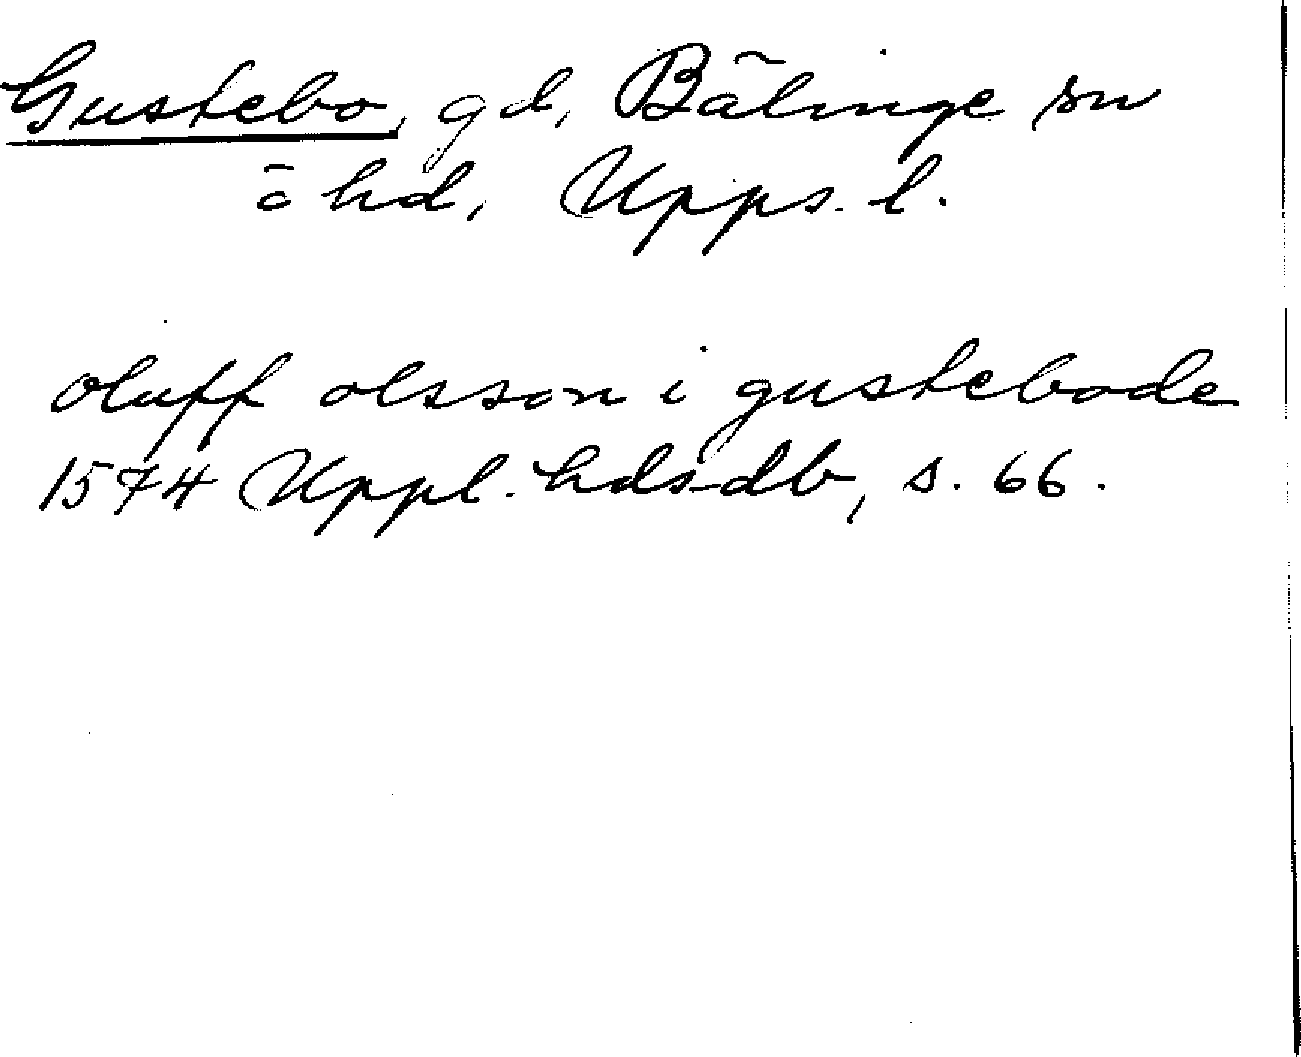 Gustebo, gd, Bälinge sn
o hd, Upps. l.
oluff olsson i gustebode
1574 Uppl. hdsdb, s. 66.